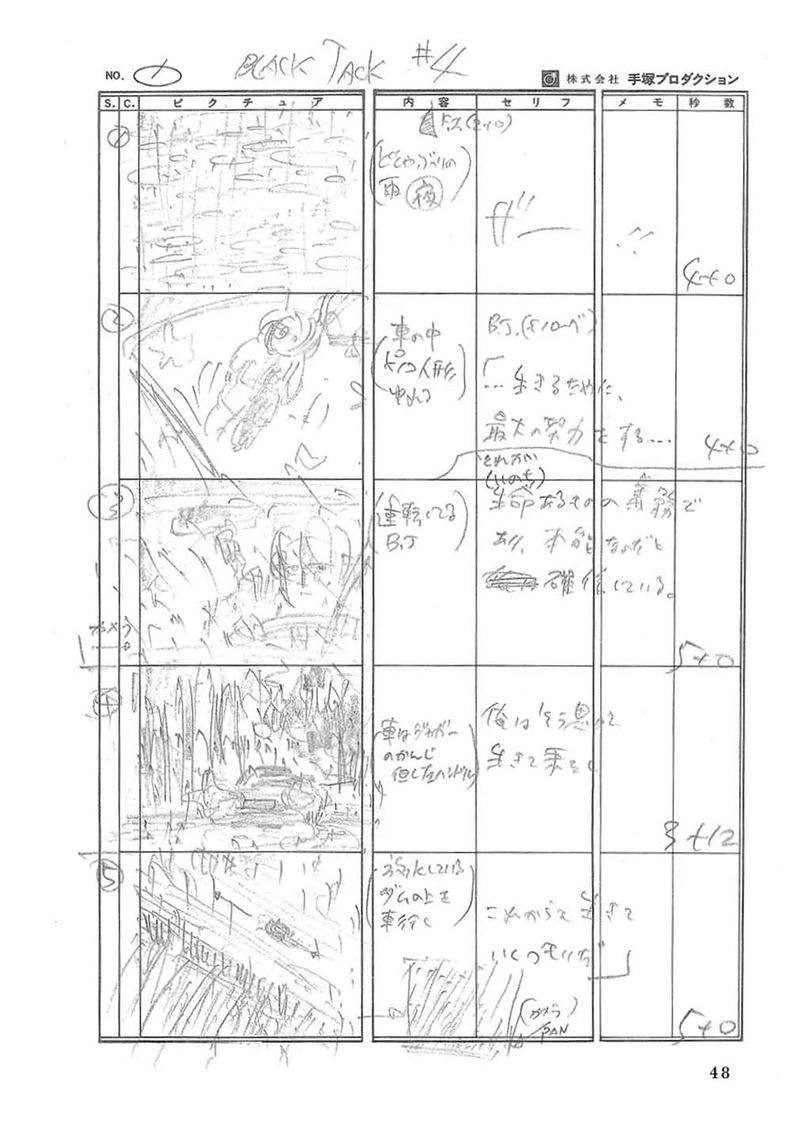 NO. 1 BLACK JACK #4 株式会社 手塚プロダクション
S. C. ピクチュア 内容 セリフ メモ 秒数
1
F.I.(2+0)
(どしゃぶりの
雨 夜)
ザー
4+0
2
車の中
(ピノコ人形
ゆれてる)
B.J.(モノローグ)
「…生きるために、
最大の努力をする…
4+0
3
(運転してる
B.J)
それが
(いのち)
生命あるものの義務で
あり、本能なのだと
確信している。
カメラ
5+0
4
車はジャガー
のかんじ
但し左ハンドル)
俺はそう思って
生きて来たし
3+12
5
ダムの上を
車行く
これからも生きて
いくつもりだ」
(カメラ
PAN)
5+0
48